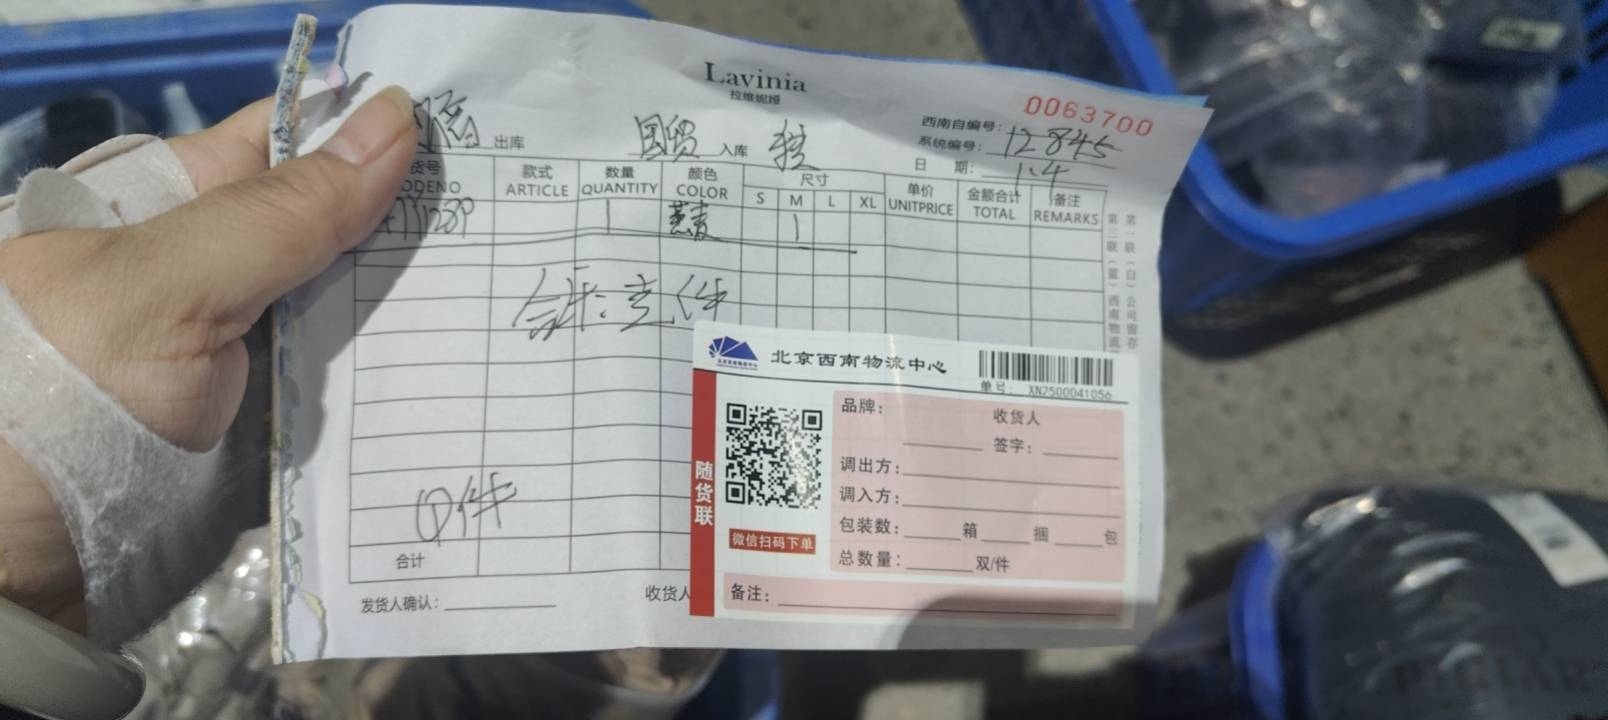 Lavinia
拉维妮娅
0063700
西南自编号:
出库
国贸 入库
系统编号: 12845
日 期: 1.4
货号 款式 数量 颜色 尺寸 单价 金额合计 备注
CODENO ARTICLE QUANTITY COLOR S M L XL UNITPRICE TOTAL REMARKS
1 燕麦 1
合计:壹件
第一联(白)公司留存
第三联(蓝)西南物流
北京西南物流中心
单号: XN2500041056
品牌: 收货人
签字:
调出方:
调入方:
包装数: 箱 捆 包
总数量: 双/件
随货联
微信扫码下单
备注:
①件
合计
发货人确认: 收货人